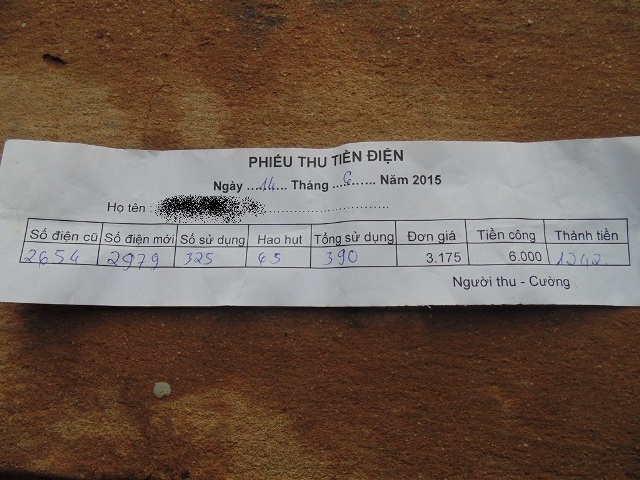 PHIẾU THU TIỀN ĐIỆN
Ngày ...14... Tháng ...6...... Năm 2015
Họ tên :
Số điện cũ Số điện mới Số sử dụng Hao hụt Tổng sử dụng Đơn giá Tiền công Thành tiền
2654 2979 325 65 390 3.175 6.000 1242
Người thu - Cường